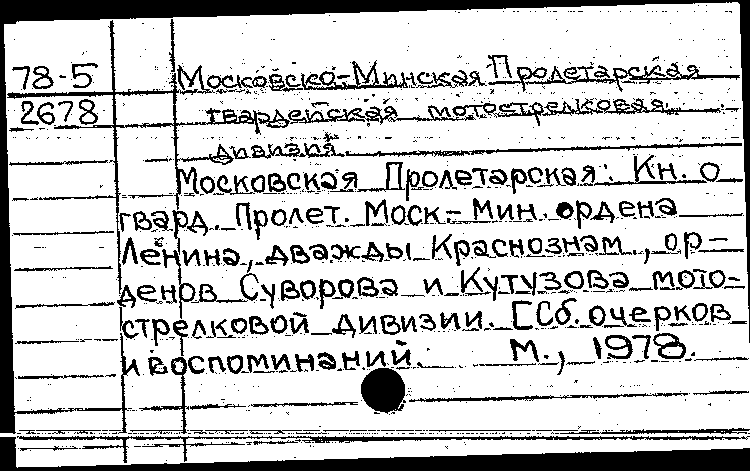 78-5 Московско-Минская Пролетарская
2678 гвардейская мотострелковая
дивизия.
Московская Пролетарская: Кн. о
гвард. Пролет. Моск.-Мин. ордена
Ленина, дважды Краснознам., ор-
денов Суворова и Кутузова мото-
стрелковой дивизии. [Сб. очерков
и воспоминаний. М., 1978.